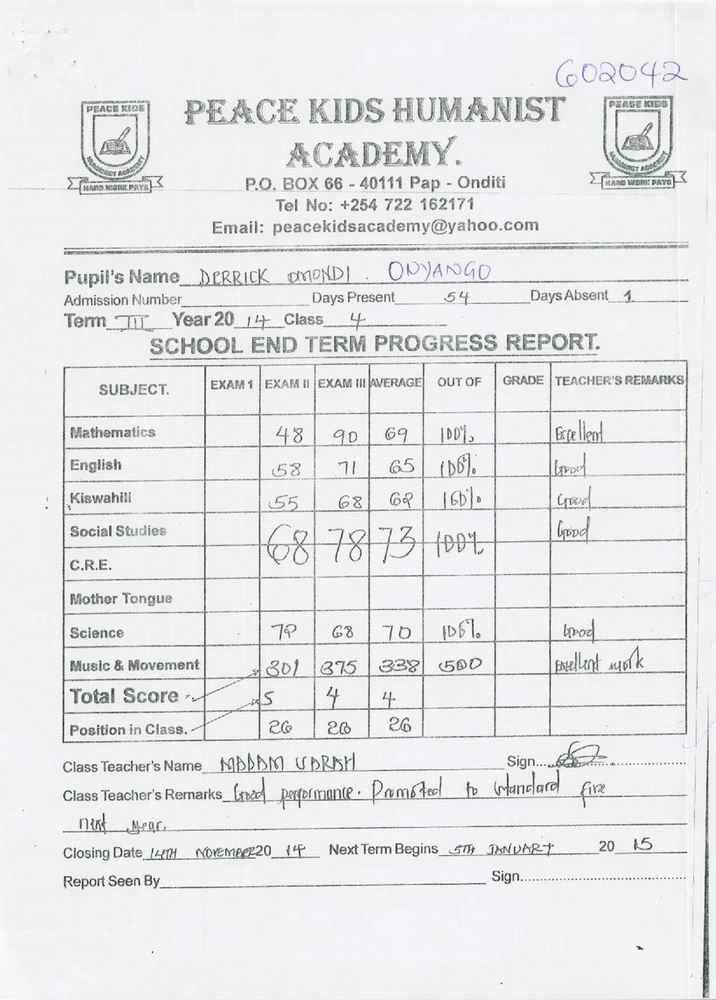 602042
PEACE KIDS
PEACE KIDS HUMANIST
PEACE KIDS
HUMANIST ACADEMY
ACADEMY.
HUMANIST ACADEMY
HARD WORK PAYS
P.O. BOX 66 - 40111 Pap - Onditi
HARD WORK PAYS
Tel No: +254 722 162171
Email: peacekidsacademy@yahoo.com
Pupil's Name DERRICK OMONDI . ONYANGO
Admission Number Days Present 54 Days Absent 1
Term III Year 20 14 Class 4
SCHOOL END TERM PROGRESS REPORT.
SUBJECT. EXAM 1 EXAM II EXAM III AVERAGE OUT OF GRADE TEACHER'S REMARKS
Mathematics 48 90 69 100% Excellent
English 58 71 65 100% Good
Kiswahili 55 68 62 100% Good
Social Studies 68 78 73 100% Good
C.R.E.
Mother Tongue
Science 72 68 70 100% Good
Music & Movement 301 375 338 500 Excellent work
Total Score 5 4 4
Position in Class. 26 26 26
Class Teacher's Name MADAM Sign....
Class Teacher's Remarks Good performance. Promoted to standard five
next year.
Closing Date 14TH NOVEMBER 20 14 Next Term Begins 5TH JANUARY 20 15
Report Seen By Sign....